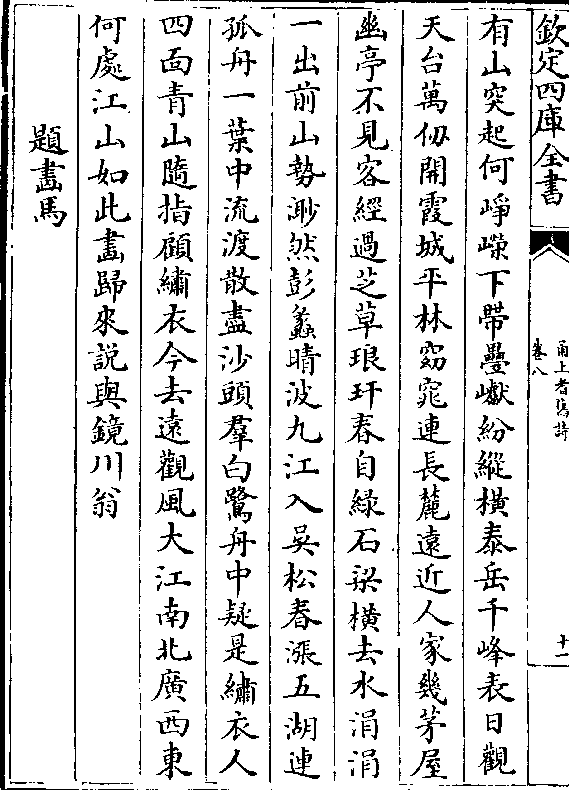 欽定四庫全書
甬上耆舊詩
卷八
十一
有山突起何崢嶸下帶疊巘紛縱橫泰岳千峰表日觀
天台萬仭開霞城平林窈窕連長麓遠近人家幾茅屋
幽亭不見客經過芝草琅玕春自綠石梁橫去水涓涓
一出前山勢渺然彭蠡晴波九江入吳松春漲五湖連
孤舟一葉中流渡散盡沙頭羣白鷺舟中疑是繡衣人
四面青山隨指顧繡衣今去遠觀風大江南北廣西東
何處江山如此畫歸來説與鏡川翁
題畫馬